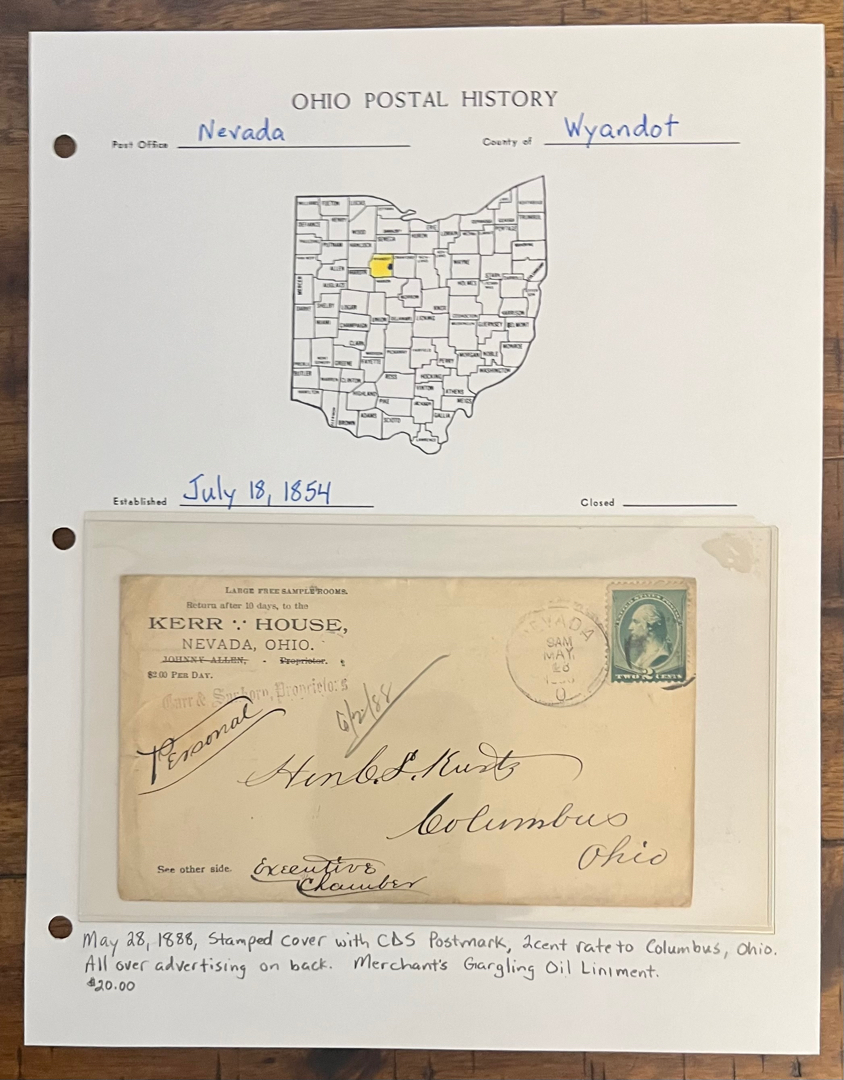 OHIO POSTAL HISTORY
Post Office Nevada County of Wyandot
WILLIAMS FULTON LUCAS
DEFIANCE HENRY WOOD ERIE LORAIN PORTAGE TRUMBULL
PAULDING PUTNAM HANCOCK SENECA HURON
ALLEN HARDIN WAYNE STARK
MERCER AUGLAIZE MARION HOLMES
DARKE SHELBY LOGAN UNION DELAWARE KNOX HARRISON
MIAMI CHAMPAIGN LICKING GUERNSEY BELMONT
CLARK MADISON MONROE
PREBLE GREENE FAYETTE PICKAWAY FAIRFIELD PERRY MORGAN NOBLE
BUTLER WARREN CLINTON ROSS HOCKING WASHINGTON
HAMILTON HIGHLAND VINTON ATHENS
PIKE JACKSON MEIGS
BROWN ADAMS SCIOTO GALLIA
LAWRENCE
Established July 18, 1854 Closed
LARGE FREE SAMPLE ROOMS.
Return after 10 days, to the
KERR ∵ HOUSE,
NEVADA, OHIO.
JOHNNY ALLEN, - Proprietor.
$2.00 PER DAY.
Proprietors
NEVADA
9AM
MAY
28
O
UNITED STATES POSTAGE
2
TWO CENTS
6/2/88
Personal
Hon C. L. Kurtz
Columbus
Ohio
See other side. Executive
Chamber
May 28, 1888, Stamped cover with CDS Postmark, 2cent rate to Columbus, Ohio.
All over advertising on back. Merchant's Gargling Oil Liniment.
$20.00